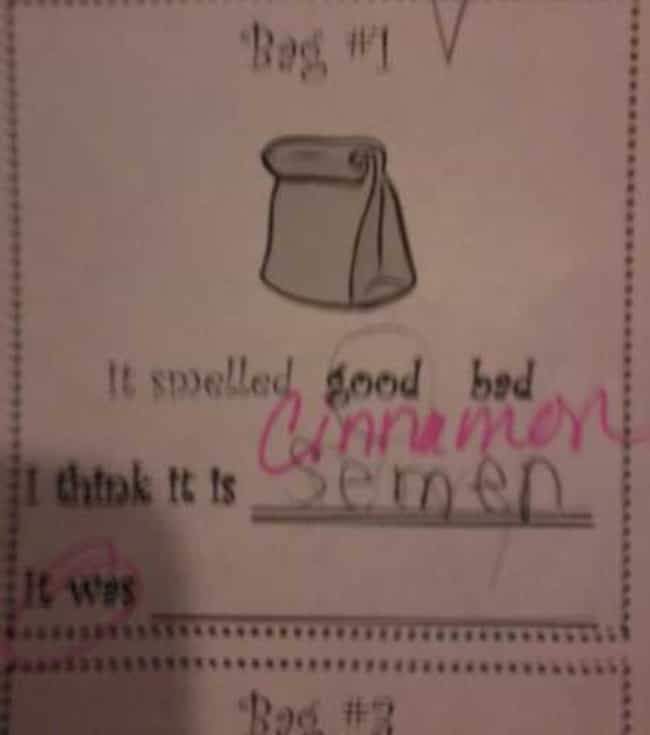 Bag #1
It smelled good bad
cinnamon
I think it is semen
It was
Bag #2